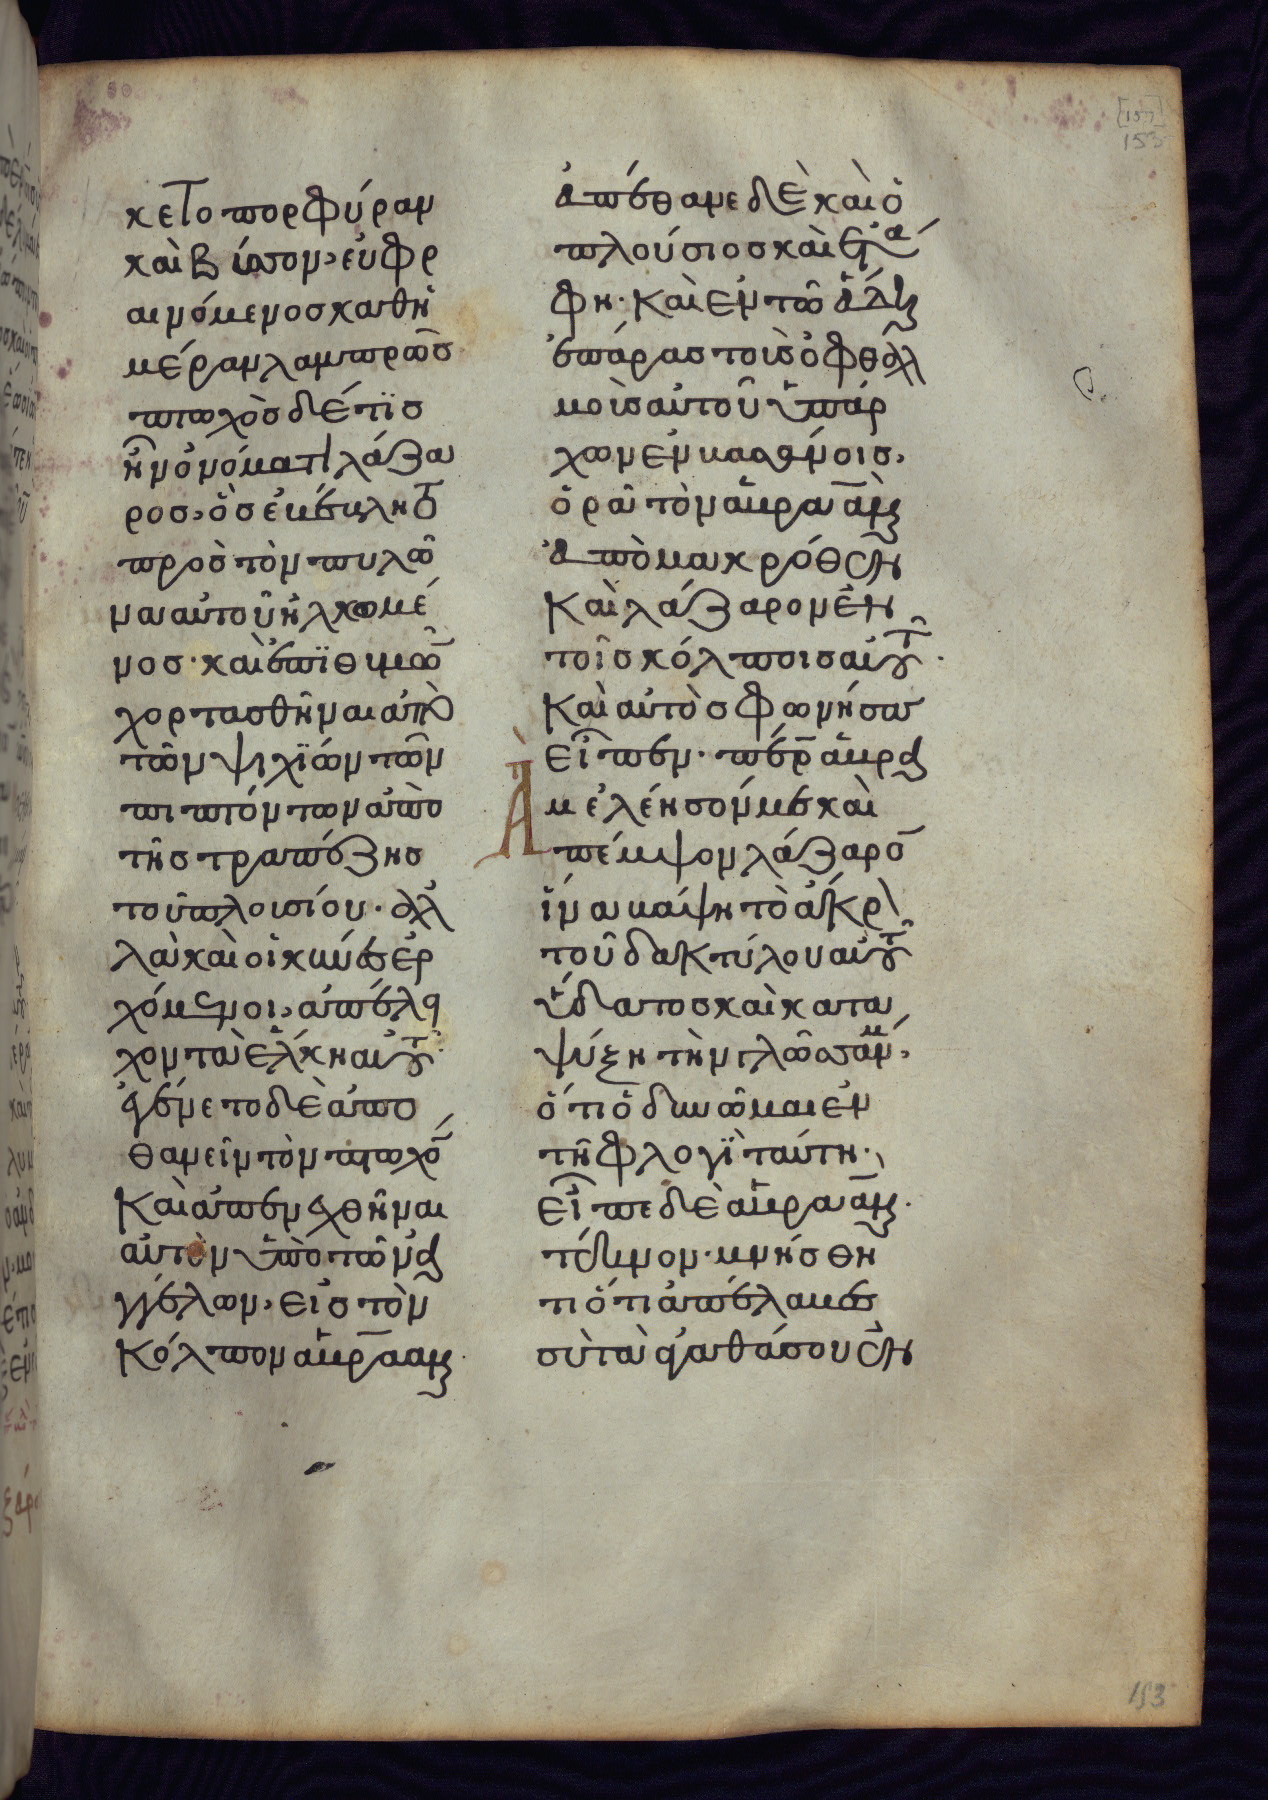 κετο πορφύραν
καὶ βύσσον, εὐφρ
αινόμενος καθη
μέραν λαμπρῶσ
πτωχὸσ δέ τϊσ
ἦν ὀνόματι λάζα
ροσ, ὃσ ἐβέβλητο
πρὸσ τὸν πυλῶ
να αὐτοῦ ἡλκωμέ
νοσ· καὶ ἐπϊθυμῶ
χορτασθῆναι ἀπὸ
τῶν ψιχϊών τῶν
πιπτόντων ἀπὸ
τῆσ τραπέζησ
τοῦ πλουσίου· ἀλ
λὰ καὶ οἱ κύνεσ ἐρ
χόμενοι, ἀπέλει
χον τὰ ἕλκη αὐτοῦ·
ἐγένετο δὲ ἀπο
θανεῖν τὸν πτωχὸ
καὶ ἀπενεχθῆναι
αὐτὸν ὑπὸ τῶν ἀγ
γέλων, εἰσ τὸν
κόλπον ἀβρααμ·
ἀπέθανε δὲ καὶ ὁ
πλούσιοσ καὶ ἐτά
φη· καὶ ἐν τῶ ἅδη
ἐπάρασ τοὺσ ὀφθαλ
μοὺσ αὐτοῦ ὑπάρ
χων ἐν βασάνοισ,
ὁρᾶ τὸν ἀβραὰμ
ἀπὸ μακρόθεν
καὶ λάζαρον ἐν
τοῖσ κόλποισ αὐτοῦ·
καὶ αὐτὸσ φωνήσασ
εἶπεν· περ ἀβρα
ἀμ ἐλέησόν με καὶ
πέμψον λάζαρο
ἵνα βάψη τὸ ἄκρον
τοῦ δακτύλου αὐτοῦ
ὕδατοσ καὶ κατα
ψύξη τὴν γλῶσσάν μου,
ὅτι ὀδυνῶμαι ἐν
τῆ φλογῒ ταύτη·
εἶπε δὲ ἀβραάμ·
τέκνον· μνήσθη
τι ὅτι ἀπέλαβεσ
σὺ τὰ ἀγαθά σου ἐν
153
153